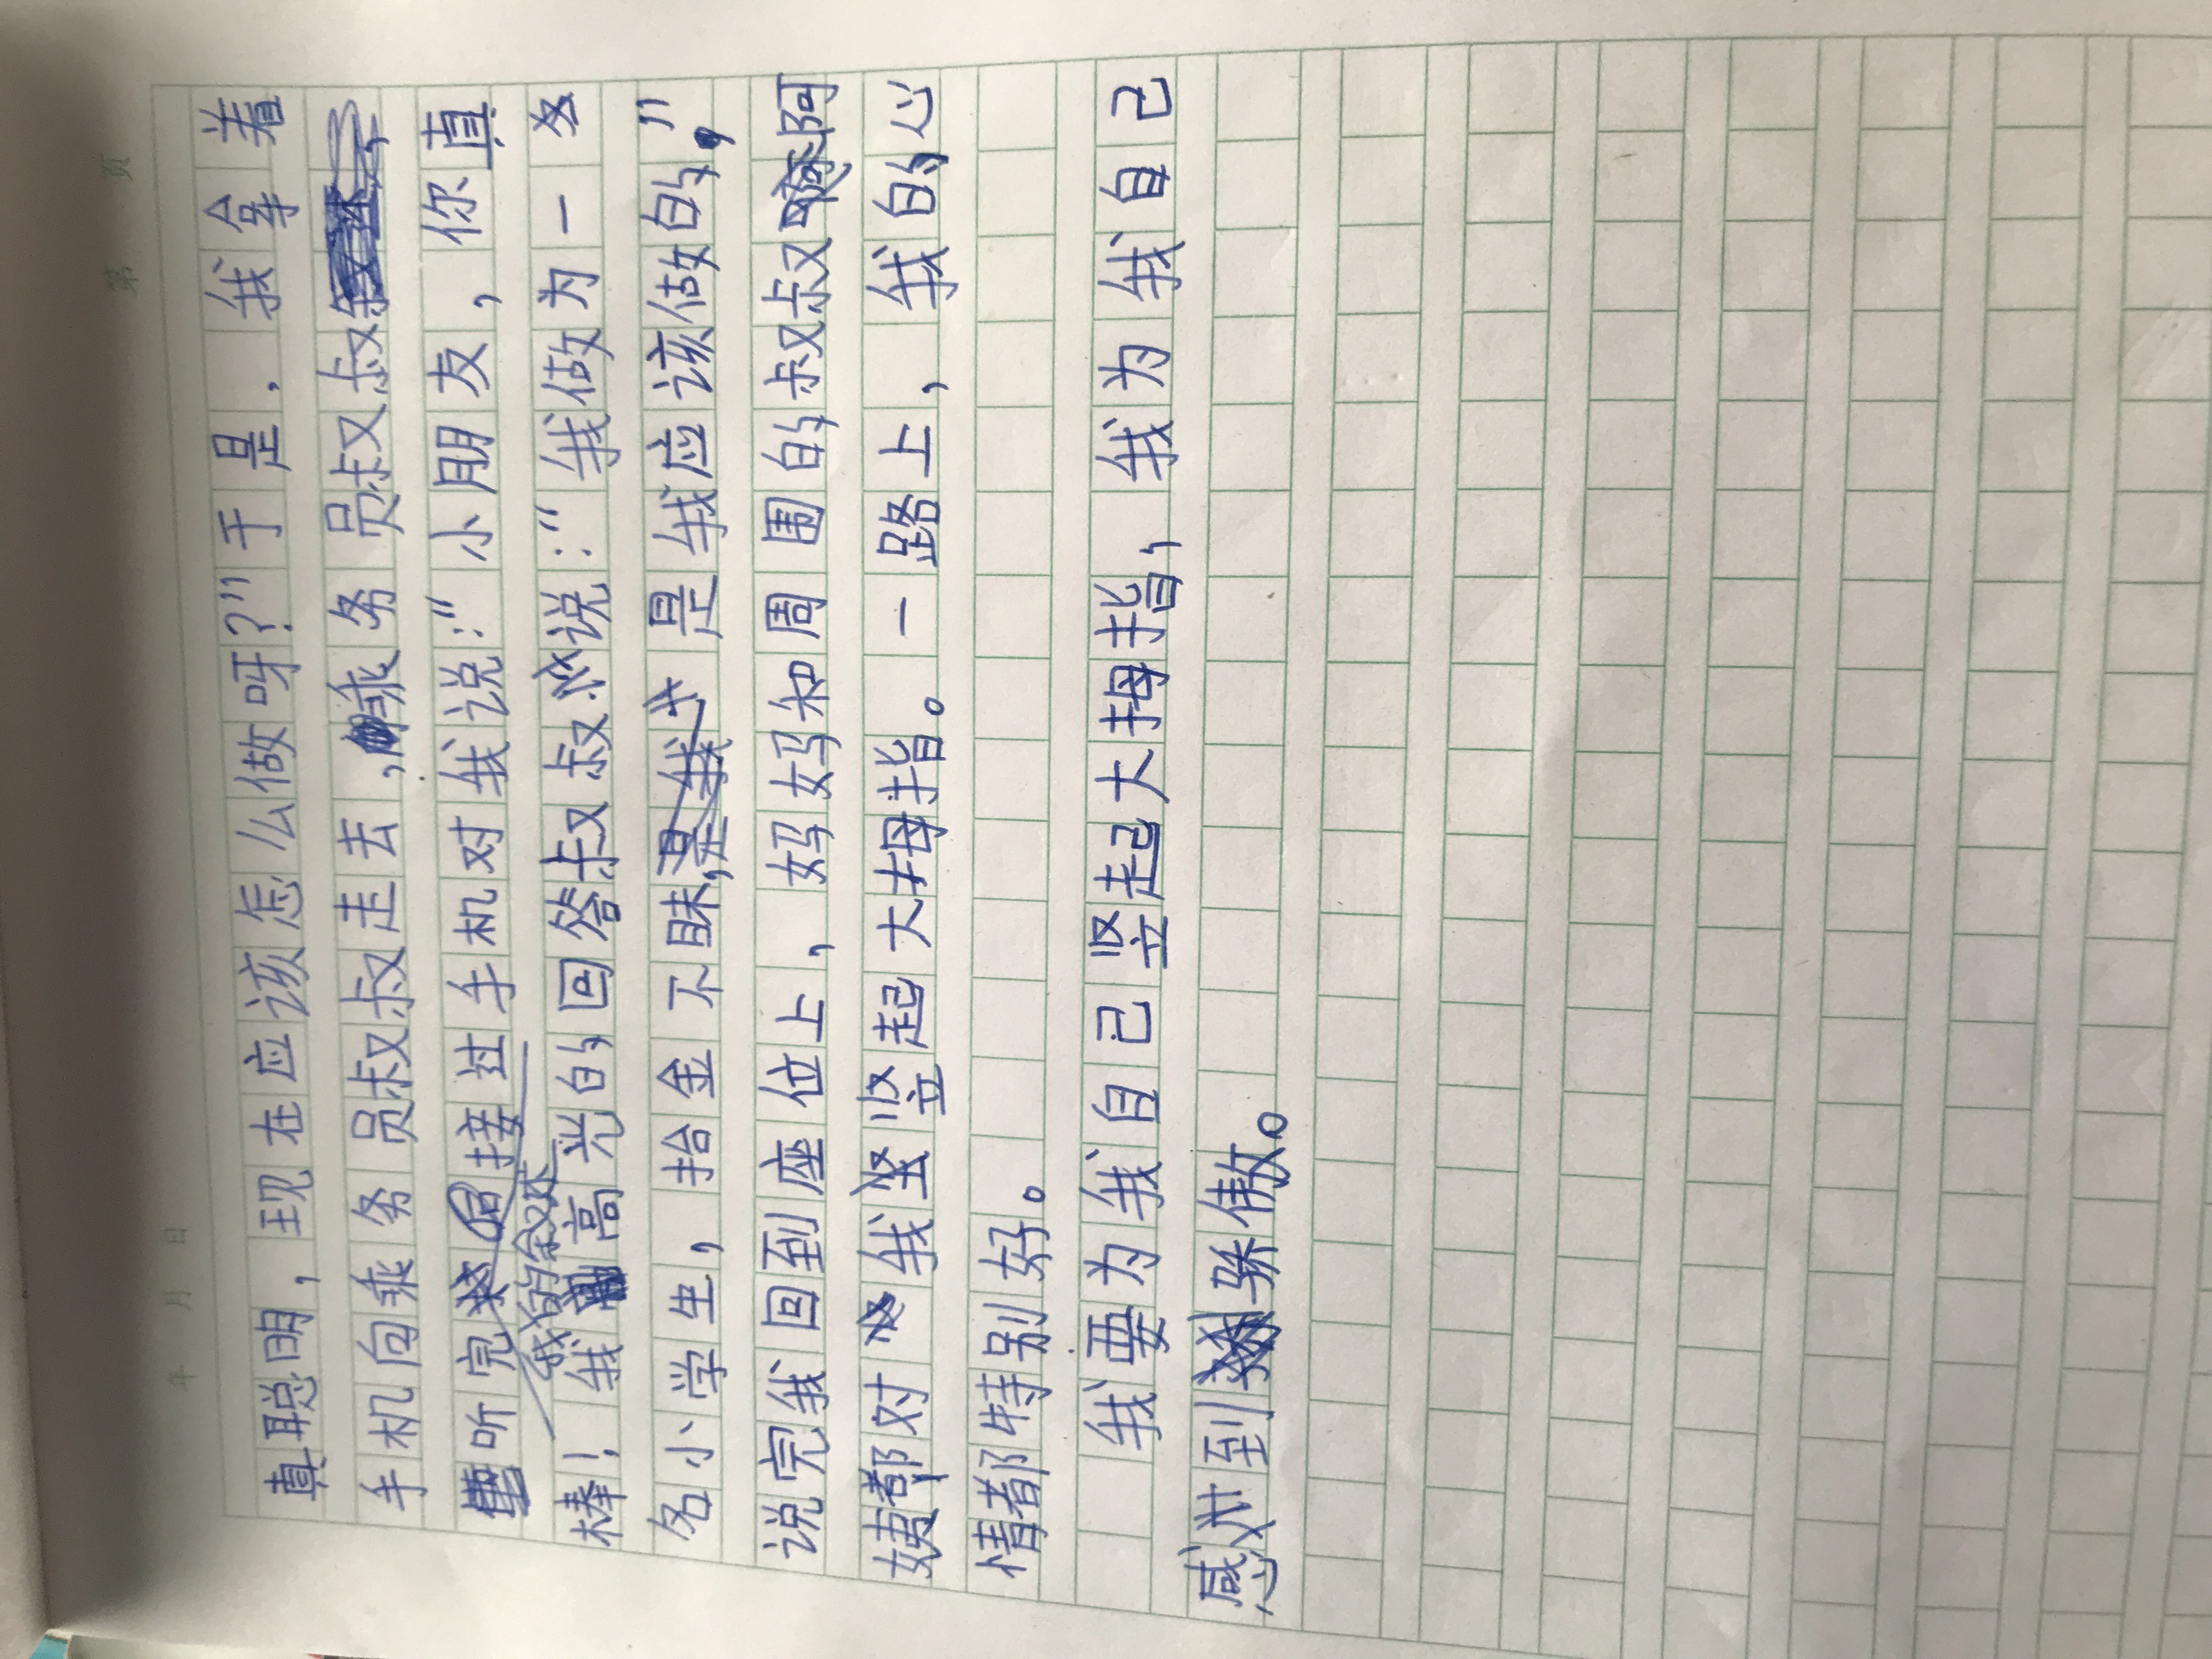 年 月 日 第 页
真聪明，现在应该怎么做呀？”于是，我拿着
手机向乘务员叔叔走去，乘务员叔叔
听完接过手机对我说：“小朋友，你真
棒！我高兴的回答叔叔说：“我做为一名
名小学生，拾金不昧，是我应该做的，”
说完我回到座位上，妈妈和周围的叔叔阿
姨都对我竖起大拇指。一路上，我的心
情都特别好。
我要为我自己竖起大拇指，我为我自己
感到骄傲。